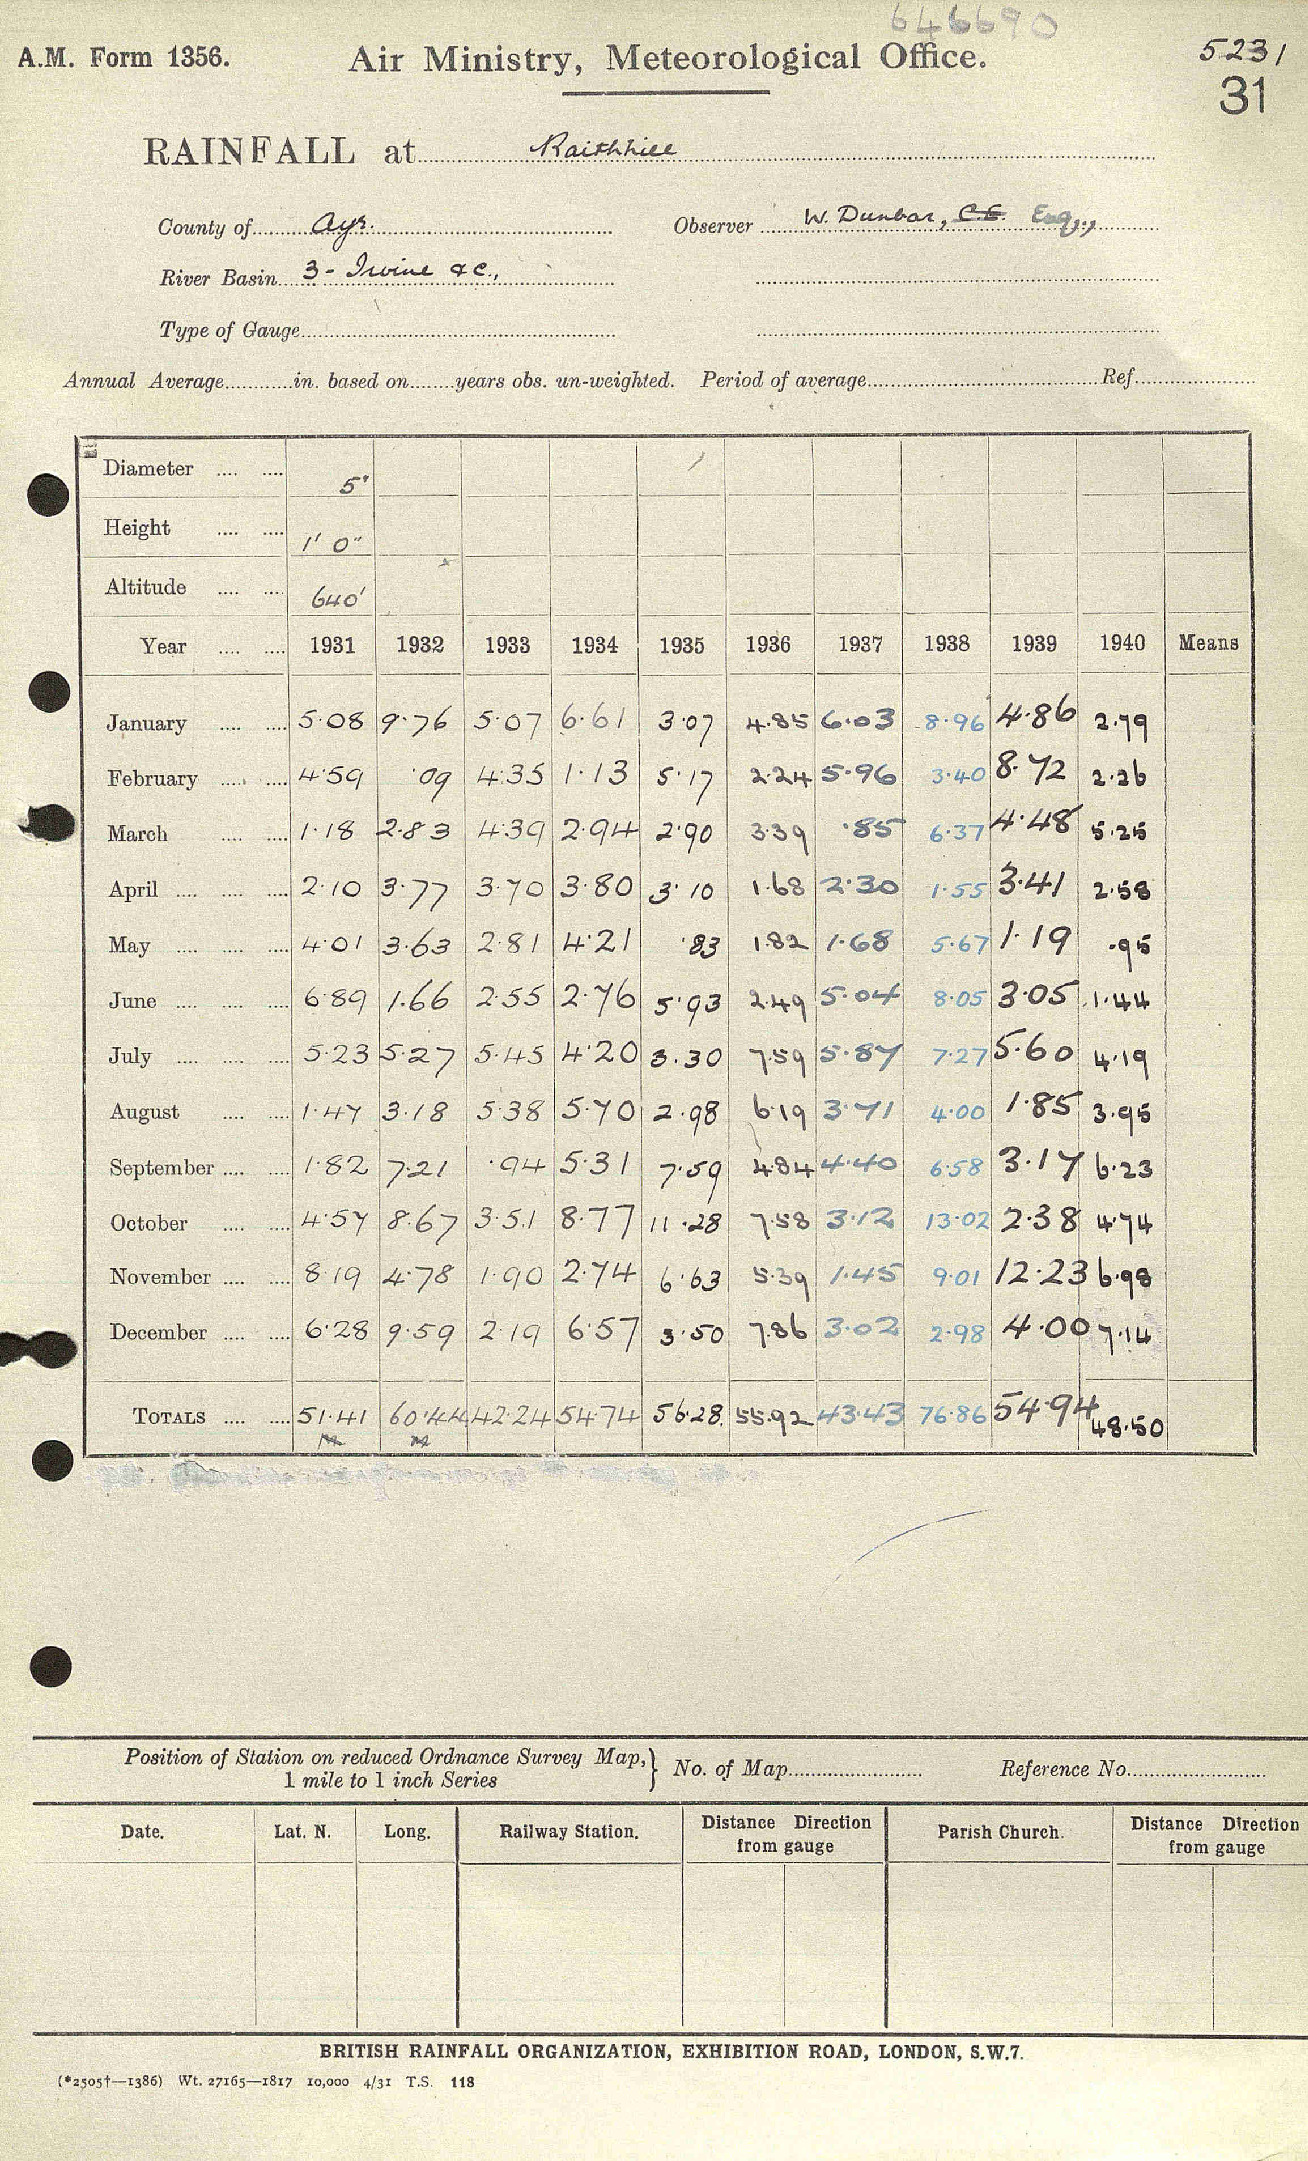 646690
A.M. Form 1356. Air Ministry, Meteorological Office. 5231
31
RAINFALL at Raithhill
County of Ayr. Observer W. Dunbar, C.E. Esq.,
River Basin 3 - Irvine &c.,
Type of Gauge
Annual Average in. based on years obs. un-weighted. Period of average Ref.
Diameter 5"
Height 1' 0"
Altitude 640'
Year 1931 1932 1933 1934 1935 1936 1937 1938 1939 1940 Means
January 5.08 9.76 5.07 6.61 3.07 4.85 6.03 8.96 4.86 2.79
February 4.59 .09 4.35 1.13 5.17 2.24 5.96 3.40 8.72 2.26
March 1.18 2.83 4.39 2.94 2.90 3.39 .85 6.37 4.48 5.25
April 2.10 3.77 3.70 3.80 3.10 1.68 2.30 1.55 3.41 2.58
May 4.01 3.63 2.81 4.21 .83 1.82 1.68 5.67 1.19 .95
June 6.89 1.66 2.55 2.76 5.93 2.49 5.04 8.05 3.05 1.44
July 5.23 5.27 5.45 4.20 3.30 7.59 5.87 7.27 5.60 4.19
August 1.47 3.18 5.38 5.70 2.98 6.19 3.71 4.00 1.85 3.95
September 1.82 7.21 .94 5.31 7.59 4.84 4.40 6.58 3.17 6.23
October 4.57 8.67 3.51 8.77 11.28 7.58 3.12 13.02 2.38 4.74
November 8.19 4.78 1.90 2.74 6.63 5.39 1.45 9.01 12.23 6.98
December 6.28 9.59 2.19 6.57 3.50 7.86 3.02 2.98 4.00 7.14
TOTALS 51.41 60.44 42.24 54.74 56.28 55.92 43.43 76.86 54.94 48.50
Position of Station on reduced Ordnance Survey Map, } No. of Map Reference No.
1 mile to 1 inch Series
Date. Lat. N. Long. Railway Station. Distance Direction from gauge Parish Church. Distance Direction from gauge
BRITISH RAINFALL ORGANIZATION, EXHIBITION ROAD, LONDON, S.W.7.
(*2505†—1386) Wt. 27165—1817 10,000 4/31 T.S. 118